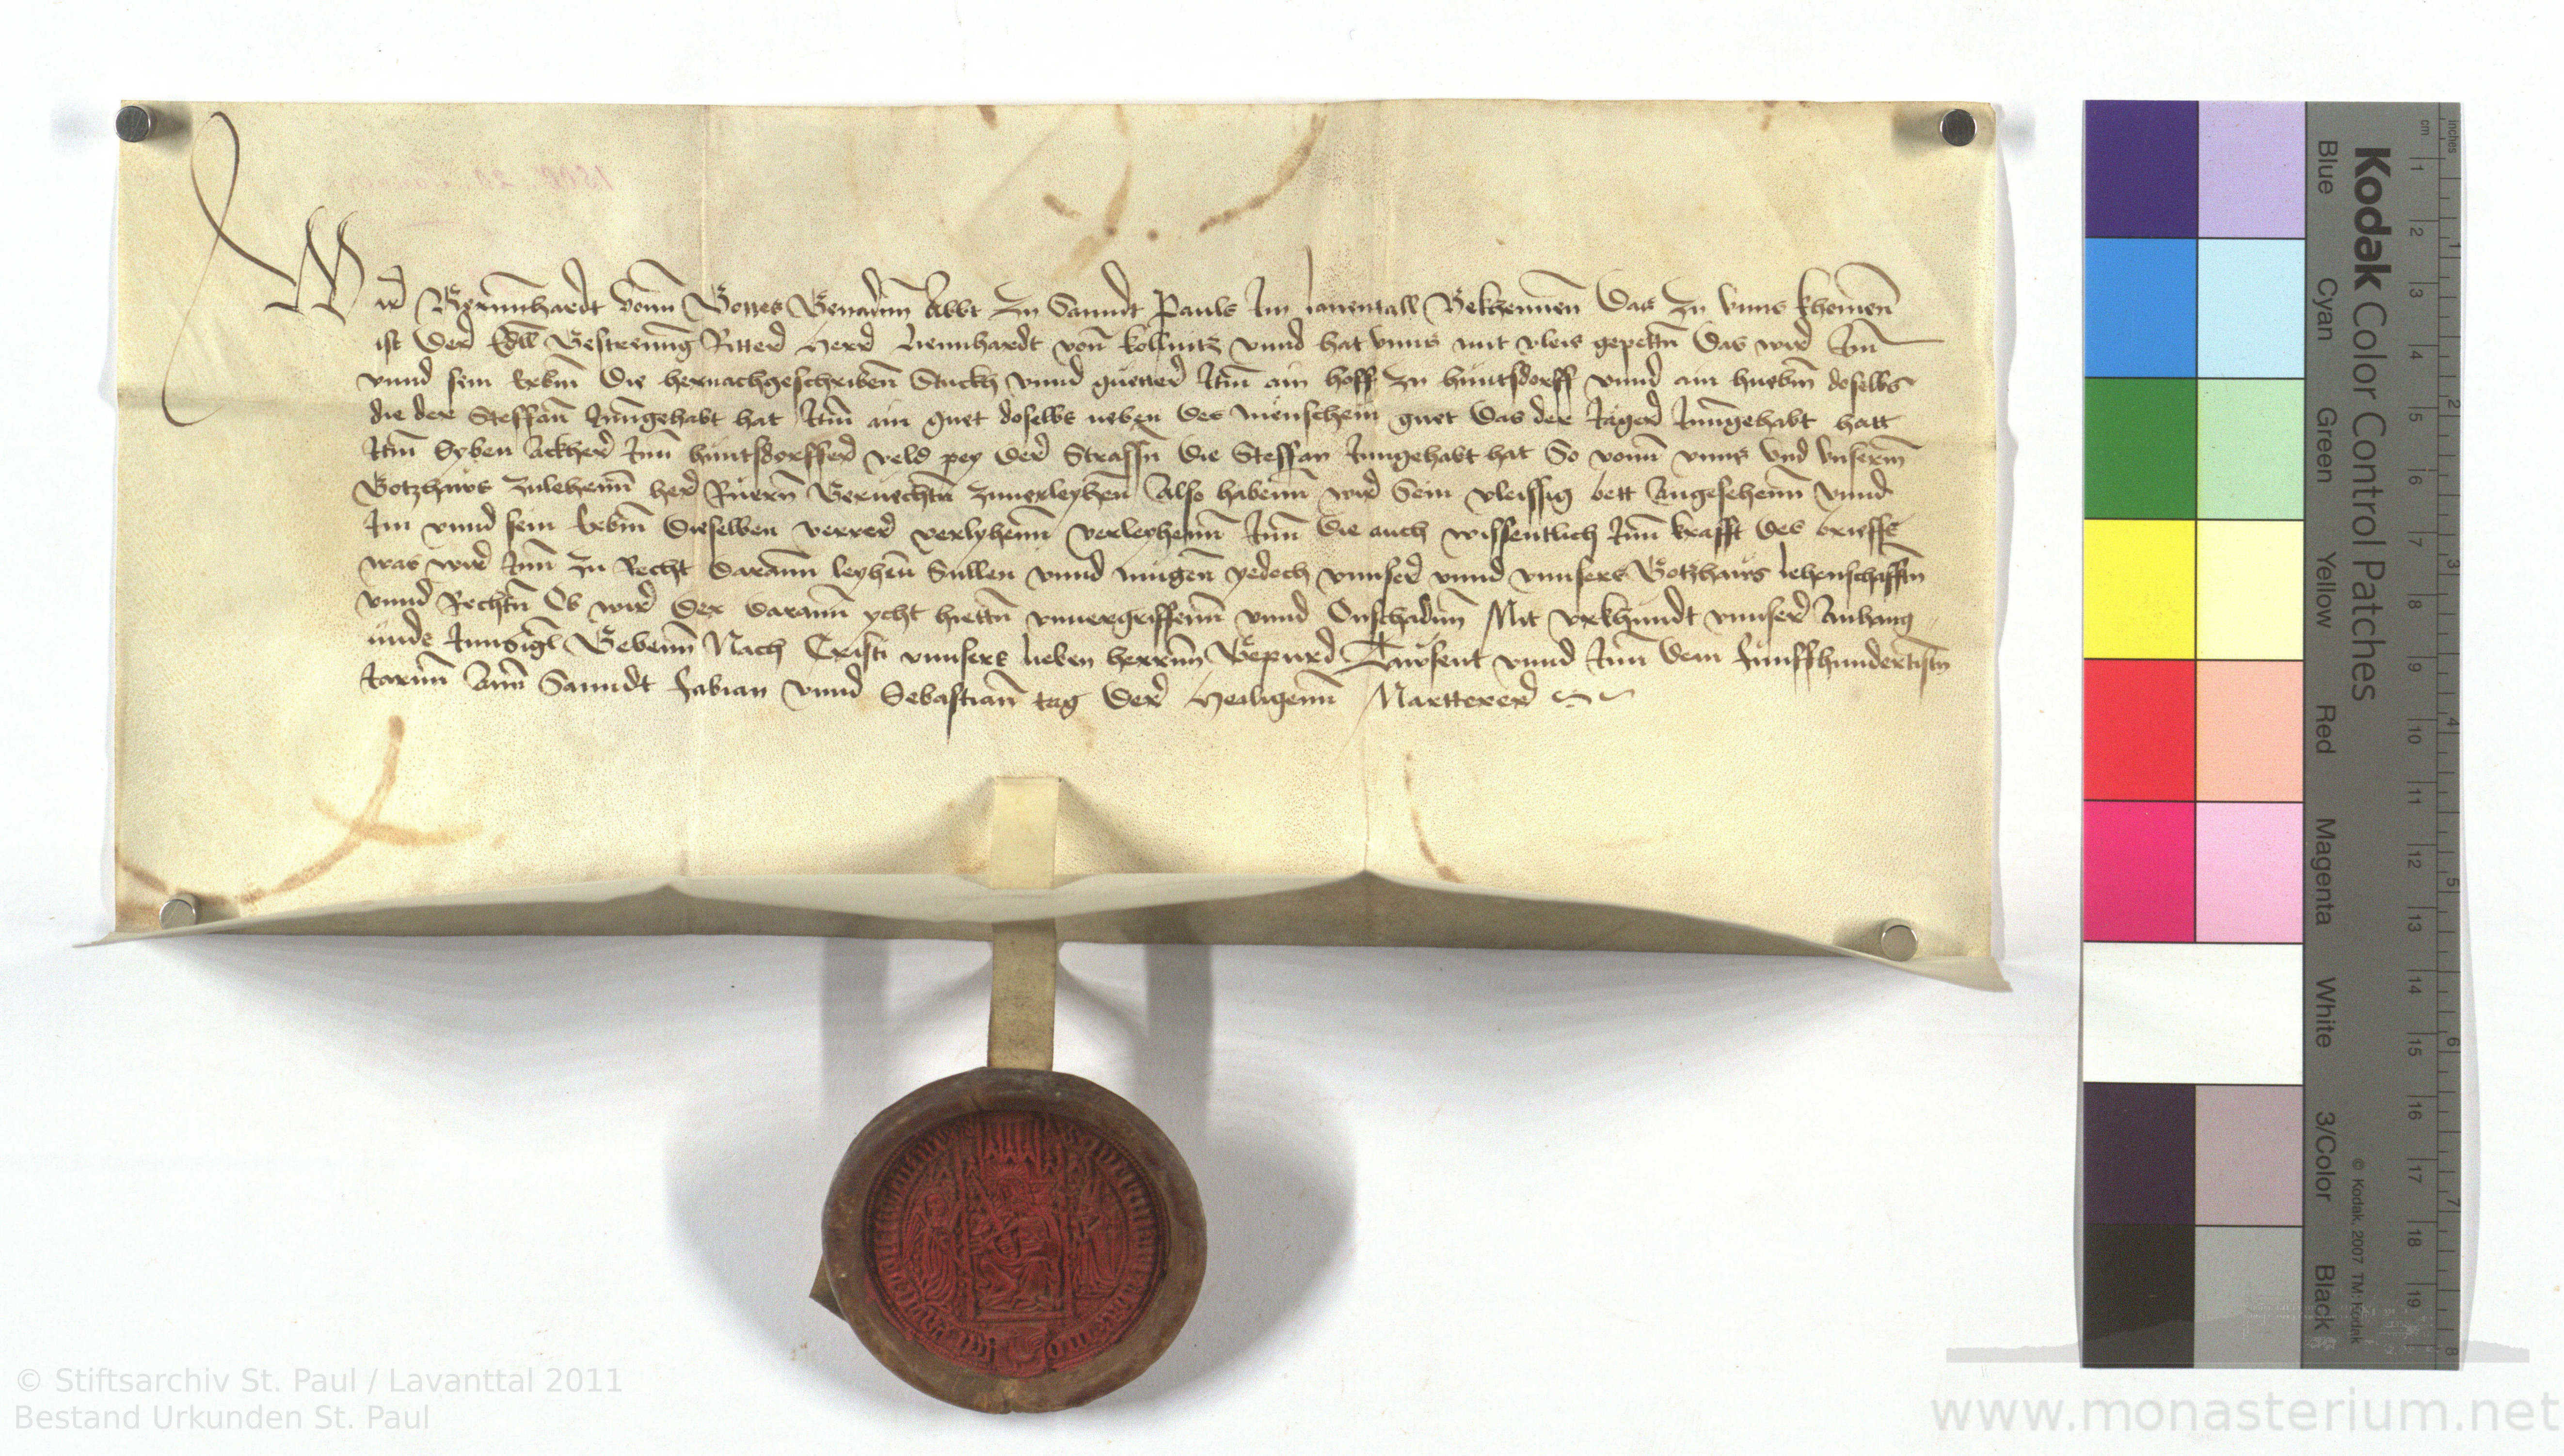 Wir Bernnhardt vonn Gottes Genadnn Abbt zu Sanndt Pauls Im lauenntall Bekhennen Das zu vnns khomen
ist Der Edll Gestrenng Ritter Herr Liennhardt vonn Kollnitz vnnd hat vnns mit vleis gepettn Das wir Im
vnnd sein Erbnn Die hernachgeschriben Stuckh vnnd guetter Itm ain hoff zu hunntsdorff vnnd ain huebm doselbs
die der Steffann Inngehabt hat Itm ain guet doselbs neben des guet das der Inngehabt hatt
Itm Syben Ackher Inn huntsdorffer veld pey der Strassn die Steffan Inngehabt hat So vonn vnns vnd vnserm
Gotzhaws zulehenn her Ruern Geruechtn zuuerleyhen Also habenn wir Sein vleissig bett Angesehenn vnnd
Im vnnd sein Erbnn Dieselben verrer verlyhenn verleyhenn Inn die auch wissentlich Inn krafft des brieffs
was wir Inn zu Recht darann leyhen Sullen vnnd mugen yedoch vnnser vnnd vnnsers Gotzhaws lehenschafftn
vnnd Rechtn Ob wir der darann ycht hiettn vnuergriffenn vnnd Onschadnn Mit vrkhundt vnnser Anhang
unds Innsigl Gebenn Nach Cristi vnnsers lieben herrnn Gepurd Tawsent vnnd Inn dem funffhundertistn
Iarnn Ann Sanndt Fabian vnnd Sebastiann tag Der Heiligenn Martterer
Kodak Color Control Patches
Blue Cyan Green Yellow Red Magenta White 3/Color Black
© Kodak, 2007 TM: Kodak
inches 1 2 3 4 5 6 7 8
cm 1 2 3 4 5 6 7 8 9 10 11 12 13 14 15 16 17 18 19
© Stiftsarchiv St. Paul / Lavanttal 2011
Bestand Urkunden St. Paul
www.monasterium.net